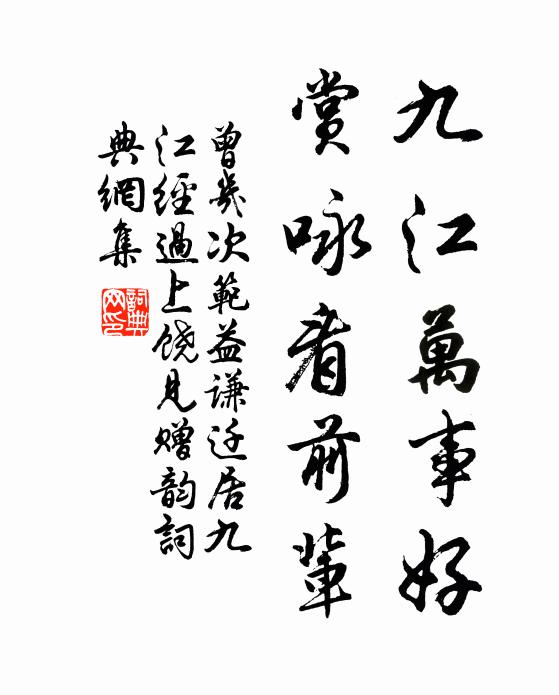 九江萬事好
賞咏看前輩
曾幾次範益謙迁居九
江經過上饶見赠韵詞
典網集
詞典
网印